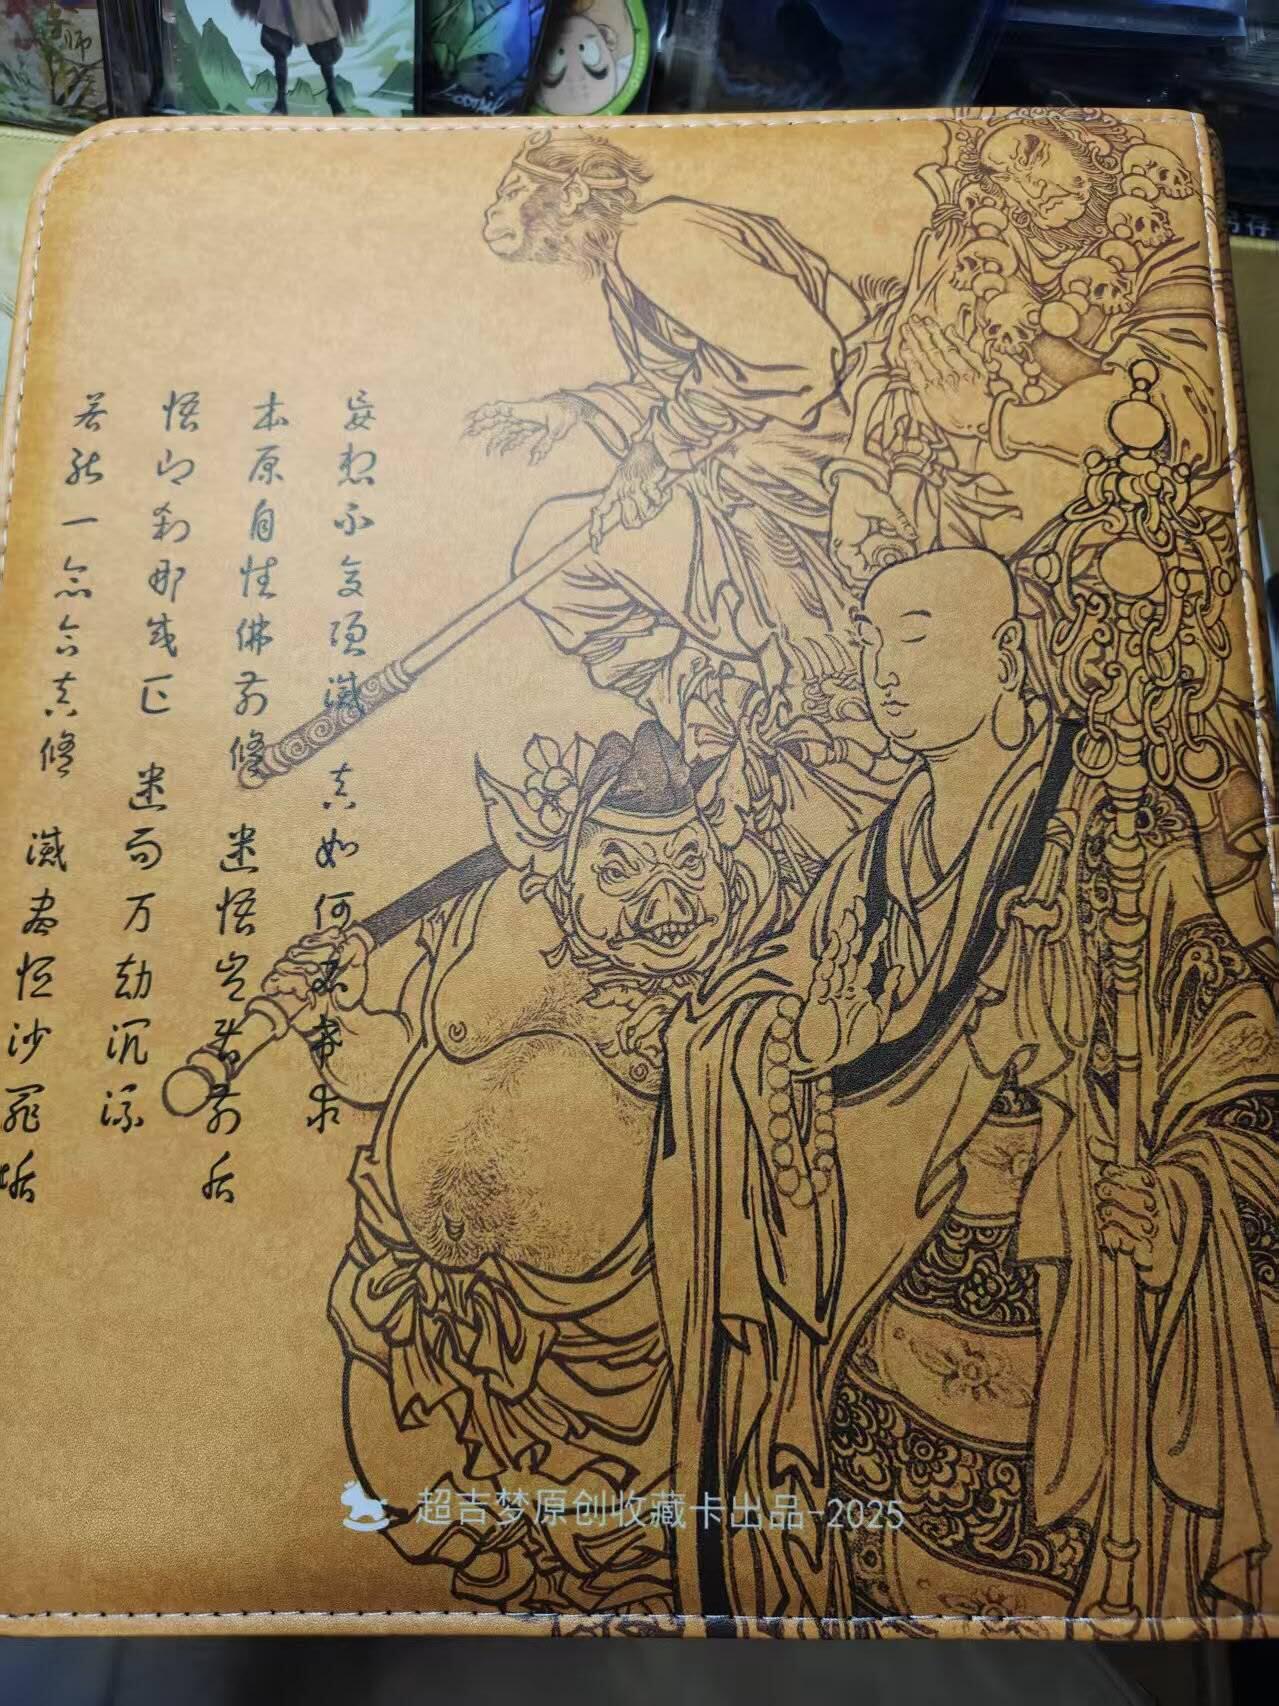 妄想不復強滅 真如何必希求
本原自性佛前修 迷悟岂居前后
悟即刹那成正 迷而万劫沉流
若能一念合真修 滅盡恒沙罪垢
超吉梦原创收藏卡出品-2025